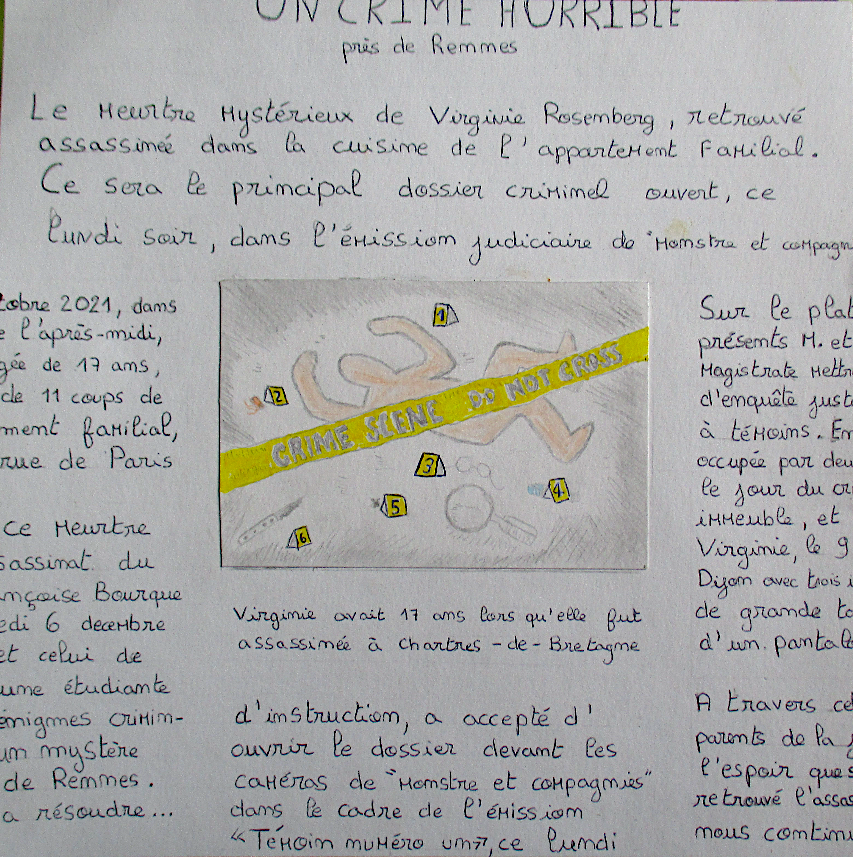 UN CRIME HORRIBLE
près de Rennes
Le Meurtre Mystérieux de Virginie Rosemberg, retrouvé
assassinée dans la cuisine de l'appartement Familial.
Ce sera le principal dossier criminel ouvert, ce
lundi soir, dans l'émission judiciaire de "Monstre et compagn
tobre 2021, dans
e l'après-midi,
gée de 17 ans,
de 11 coups de
ment familial,
rue de Paris
ce Meurtre
sassinat du
ançoise Bourque
edi 6 decembre
et celui de
une étudiante
énigmes crimin-
un mystère
de Rennes.
a résoudre...
1
2
CRIME SCENE DO NOT CROSS
3
4
5
6
Virginie avait 17 ans lors qu'elle fut
assassinée à Chartres-de-Bretagne
d'instruction, a accepté d'
ouvrir le dossier devant les
caméras de "Monstre et compagnies"
dans le cadre de l'émission
“Témoin numéro un”, ce lundi
Sur le plat
présents M. et
Magistrate Mettr
d'enquête just
à témoins. En
occupée par deu
le jour du cr
immeuble, et
Virginie, le 9
Dijon avec trois i
de grande ta
d'un pantal
A travers cet
parents de la j
l'espoir que s
retrouvé l'assas
nous continu